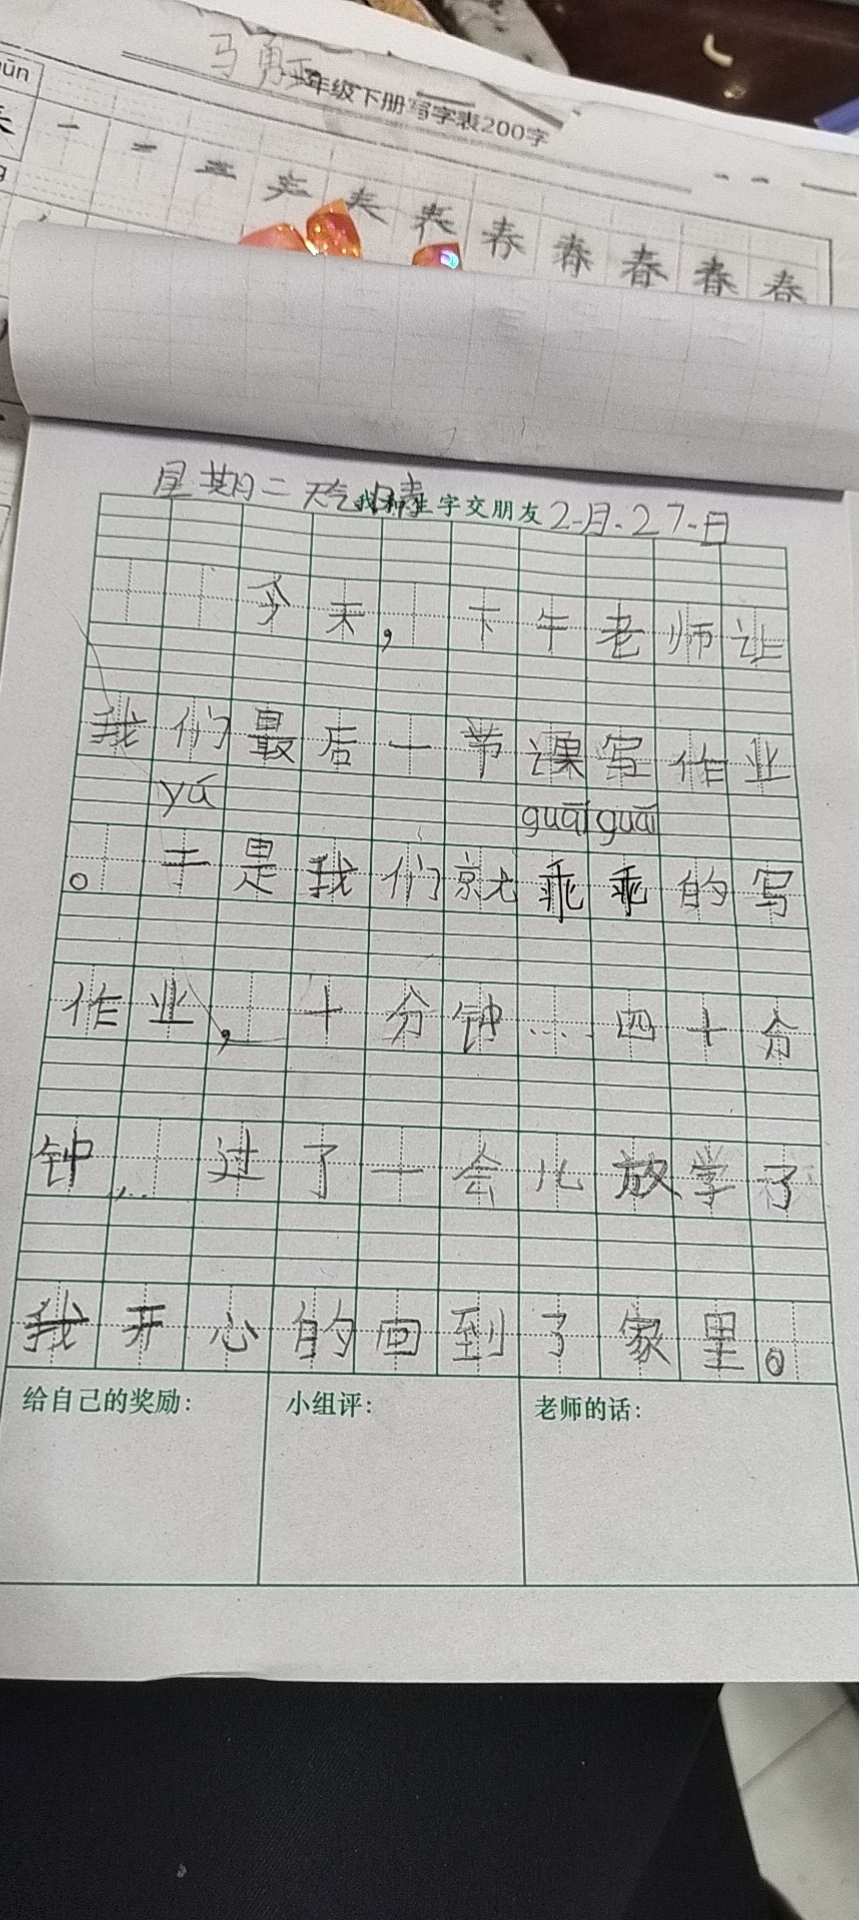 马勇
年级下册写字表200字
春 春 春 春 春
星期二 天气晴 我和生字交朋友 2月27日
今天，下午老师让
我们最后一节课写作业
yú guāi guāi
。于是我们就乖乖的写
作业，十分钟……四十分
钟…过了一会儿放学了
我开心的回到了家里。
给自己的奖励： 小组评： 老师的话：